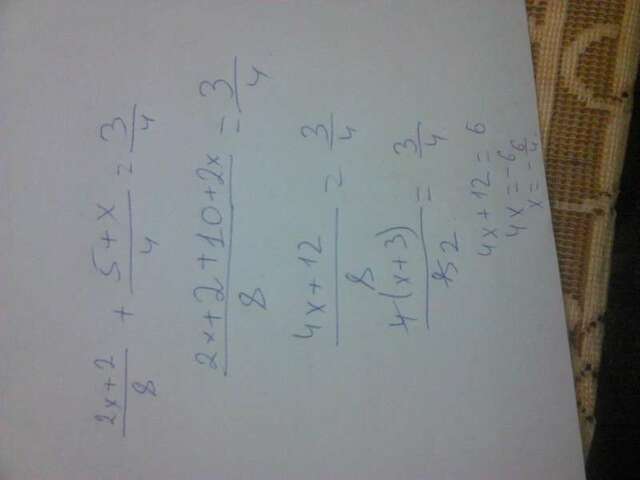 (2x+2)/8 + (5+x)/4 = 3/4
(2x+2+10+2x)/8 = 3/4
(4x+12)/8 = 3/4
4(x+3)/82 = 3/4
4x+12=6
4x=-6
x=-6/4